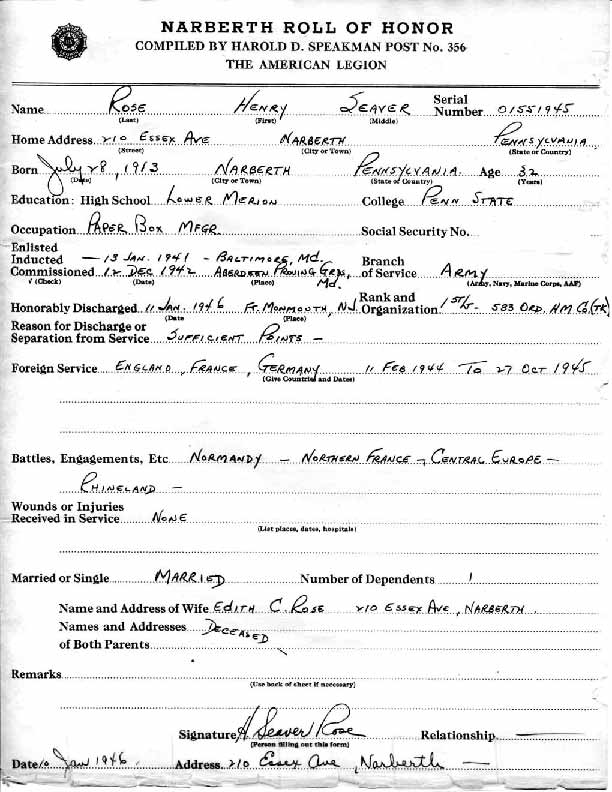 NARBERTH ROLL OF HONOR
COMPILED BY HAROLD D. SPEAKMAN POST No. 356
THE AMERICAN LEGION
Name ROSE HENRY SEAVER Serial Number 01551945
(Last) (First) (Middle)
Home Address 210 ESSEX AVE NARBERTH PENNSYLVANIA
(Street) (City or Town) (State or Country)
Born July 28, 1913 NARBERTH PENNSYLVANIA Age 32
(Date) (City or Town) (State of Country) (Years)
Education: High School LOWER MERION College PENN STATE
Occupation PAPER BOX MFGR Social Security No.
Enlisted
Inducted — 13 JAN. 1941 - BALTIMORE, Md. Branch
Commissioned 12 DEC 1942 ABERDEEN PROVING GRDS, Md. of Service ARMY
√ (Check) (Date) (Place) (Army, Navy, Marine Corps, AAF)
Honorably Discharged 11 JAN. 1946 FT. MONMOUTH, NJ Rank and Organization 1ST LT- 583 ORD. HM CO (TK)
(Date (Place)
Reason for Discharge or
Separation from Service SUFFICIENT POINTS —
Foreign Service ENGLAND, FRANCE, GERMANY 11 FEB 1944 TO 27 OCT 1945
(Give Countries and Dates)
Battles, Engagements, Etc NORMANDY — NORTHERN FRANCE — CENTRAL EUROPE —
RHINELAND —
Wounds or Injuries
Received in Service NONE
(List places, dates, hospitals)
Married or Single MARRIED Number of Dependents 1
Name and Address of Wife EDITH C. ROSE 210 ESSEX AVE, NARBERTH
Names and Addresses DECEASED
of Both Parents
Remarks
(Use back of sheet if necessary)
Signature H Seaver Rose Relationship —
(Person filling out this form)
Date 10 Jan 1946 Address 210 Essex Ave, Narberth —